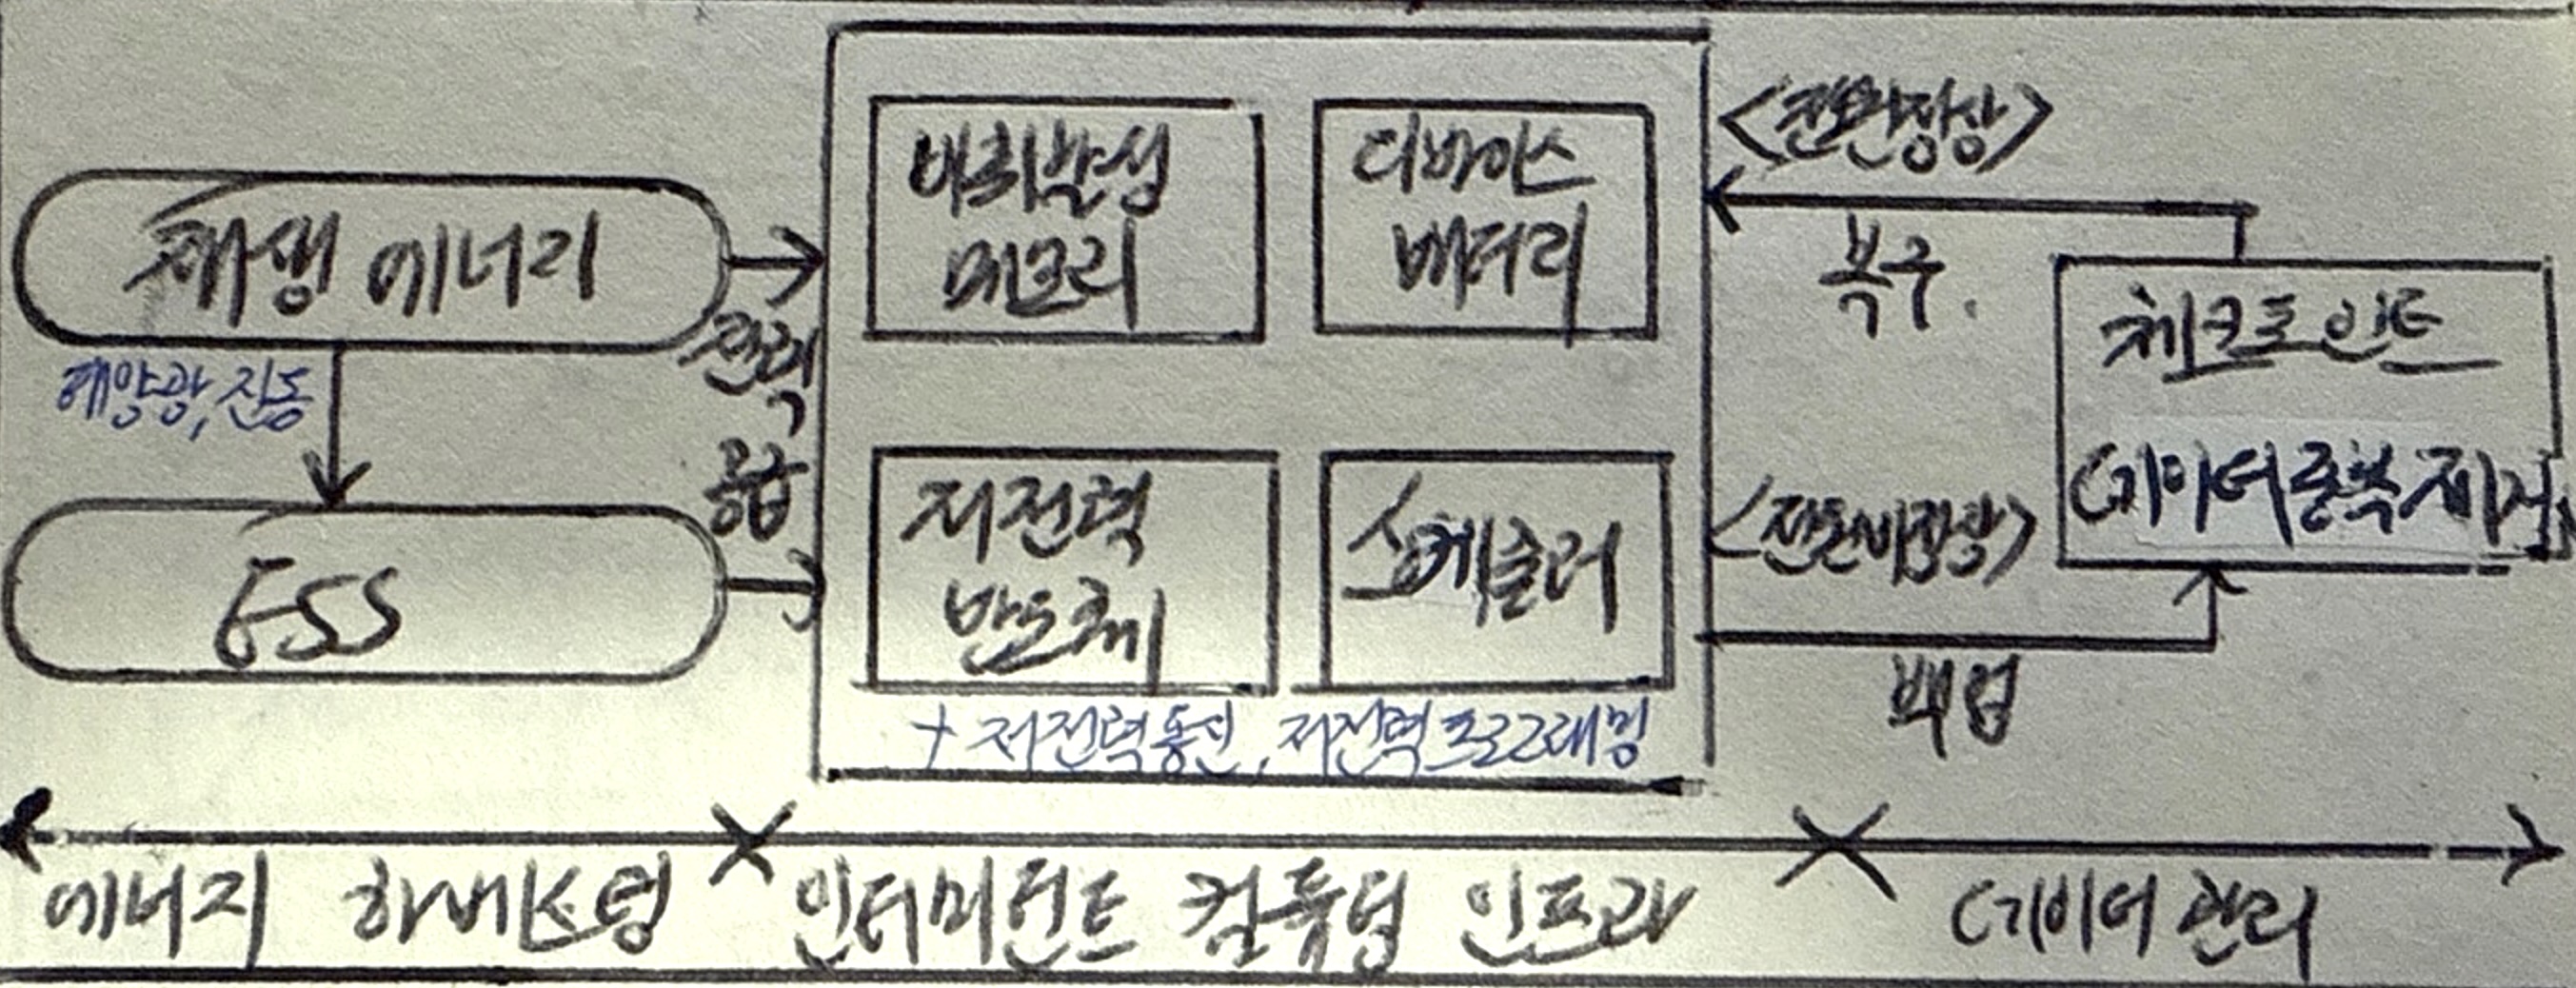 재생 에너지
태양광, 진동
ESS
전력
공급
비휘발성
메모리
디바이스
배터리
저전력
반도체
스케쥴러
+ 저전력통신, 저전력프로그래밍
<전원정상>
복구
체크포인트
데이터중복제거
<전원비정상>
백업
에너지 하베스팅
인터미턴트 컴퓨팅 인프라
데이터 관리